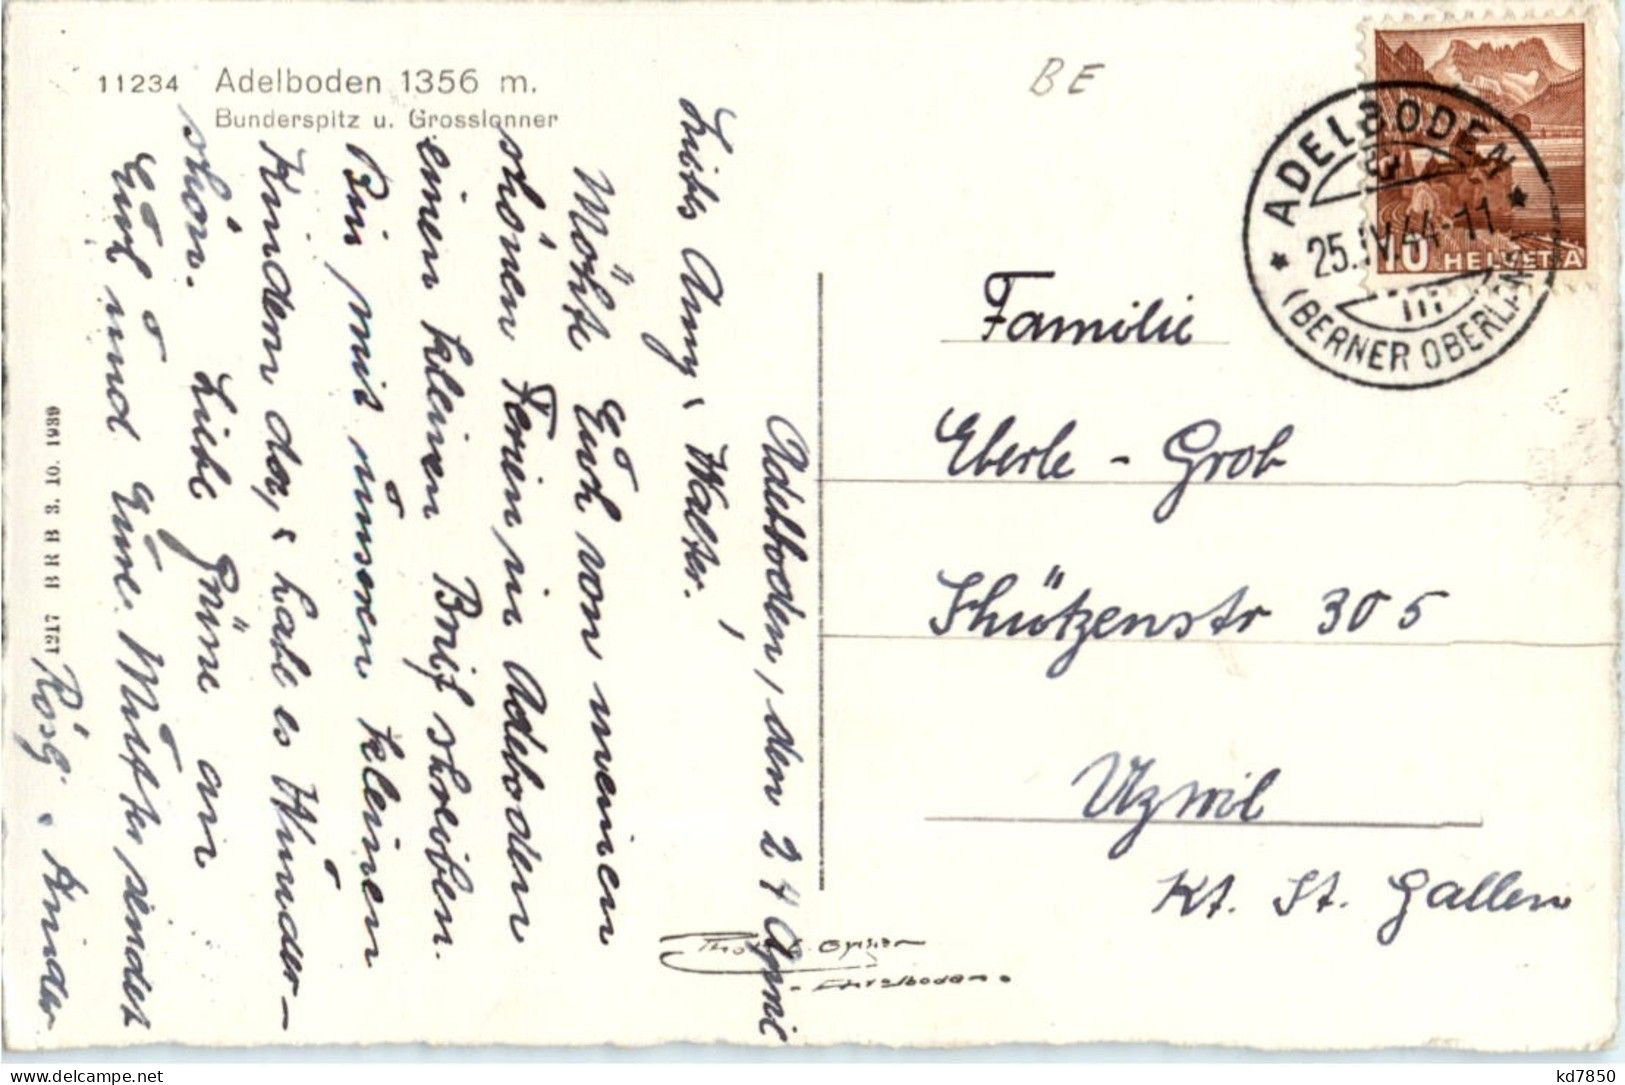 11234 Adelboden 1356 m.
Bunderspitz u. Grosslonner
BE
ADELBODEN
25.IV.44-11
(BERNER OBERLAND)
10 HELVETIA
Adelboden, den 24 April
Liebs Anny & Walter!
Möhte Euch von meinen
schönen Ferien in Adelboden
einen kleinen Brief schreiben.
Bin mit unseren kleinen
Kindern da, & habe es Wunder-
schön. Liebe Grüsse an
Euch und Eure Mutter sendet
Rösly & Kinder
Familie
Eberle - Grob
Schützenstr 305
Uzwil
Kt. St. Gallen
Phot. Gyger
Adelboden
1217 B R B 3. 10. 1939
kd7850